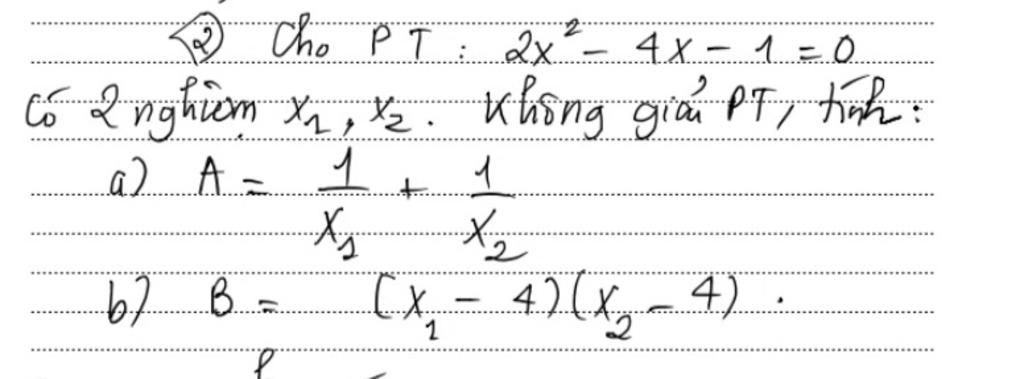 ② Cho PT : 2x² - 4x - 1 = 0
có 2 nghiệm x₁, x₂. Không giải PT, tính:
a) A = 1/x₁ + 1/x₂
b) B = (x₁ - 4)(x₂ - 4).